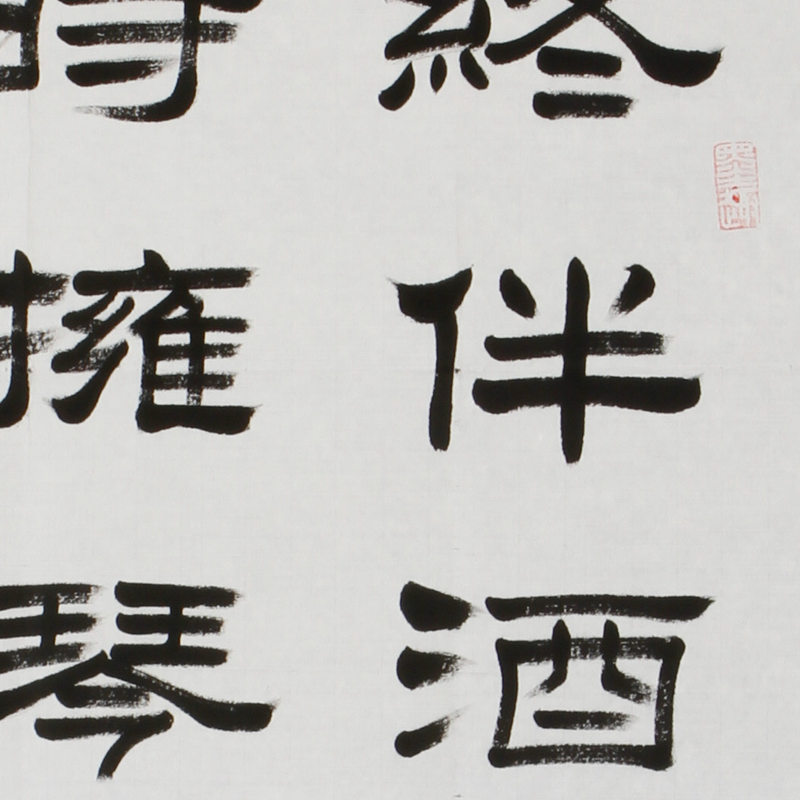 終伴酒
時擁琴